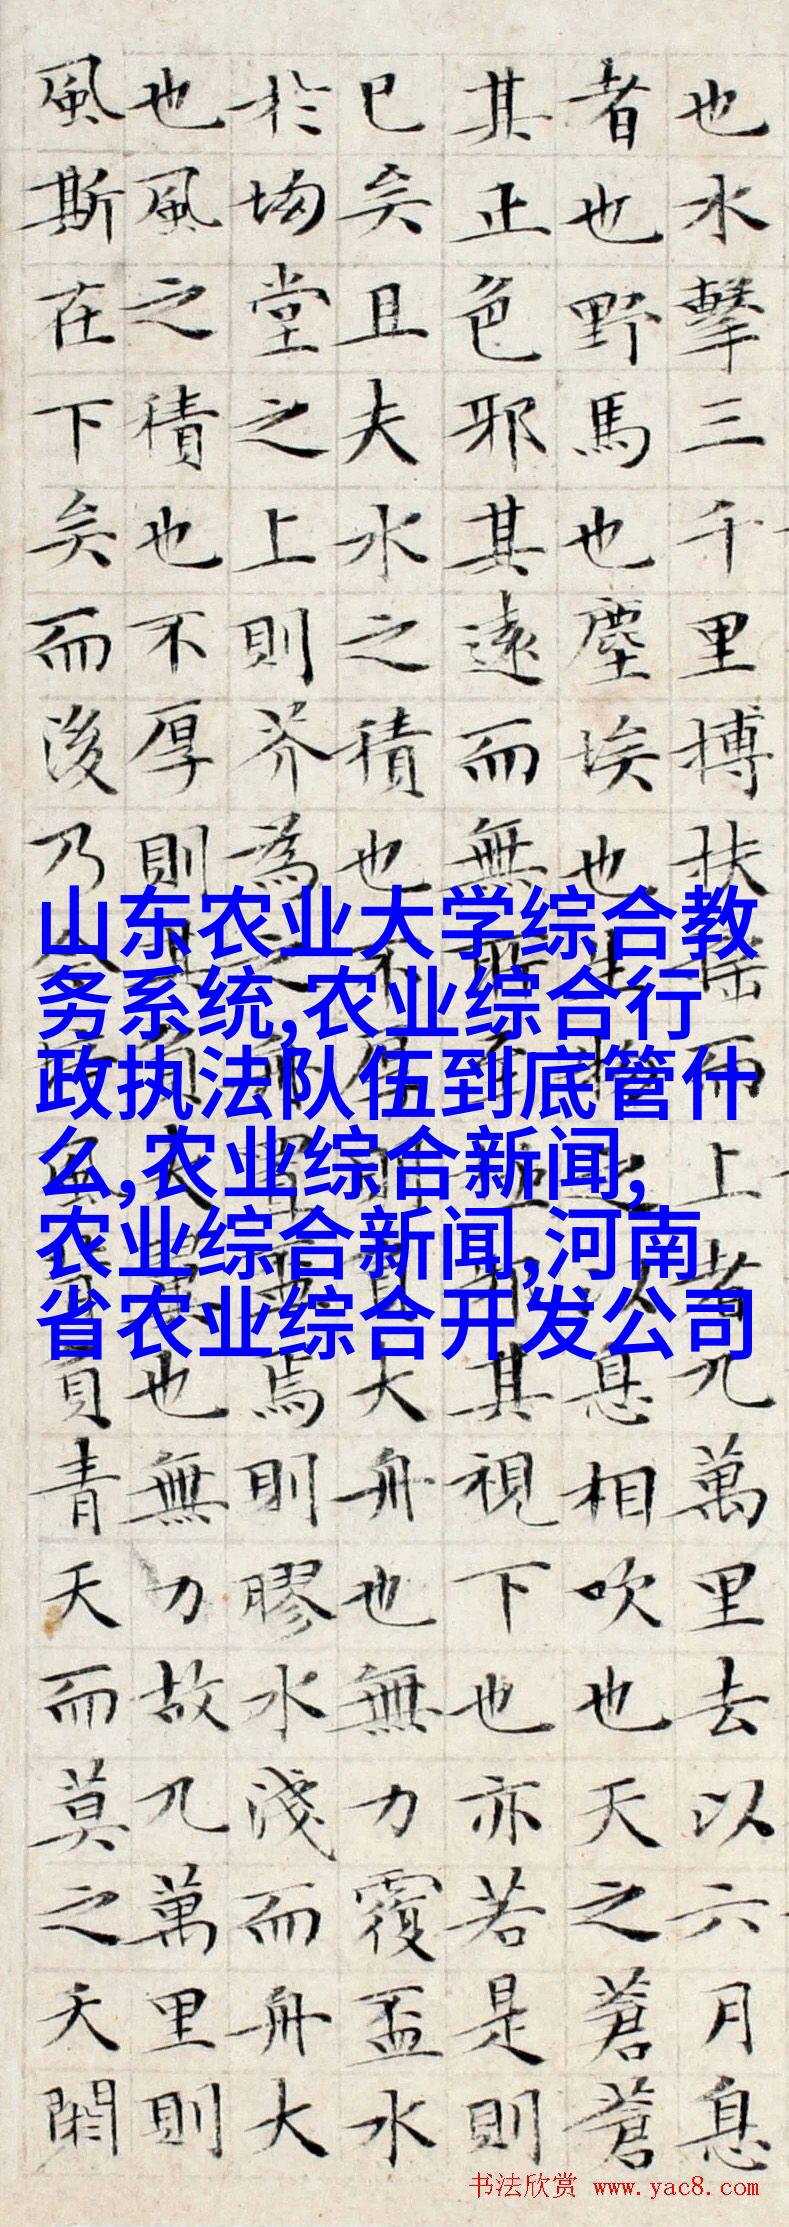 也水擊三千里搏扶搖而上者九萬里去以六月息
者也野馬也塵埃也生物之以息相吹也天之蒼蒼
其正色邪其遠而無所至極邪其視下也亦若是則
已矣且夫水之積也不厚則負大舟也無力覆盃水
於坳堂之上則芥為之舟置盃焉則膠水淺而舟大
也風之積也不厚則其負大翼也無力故九萬里則
風斯在下矣而後乃今培風背負青天而莫之夭閼
山东农业大学综合教
务系统,农业综合行
政执法队伍到底管什
么,农业综合新闻,
农业综合新闻,河南
省农业综合开发公司
书法欣赏 www.yac8.com